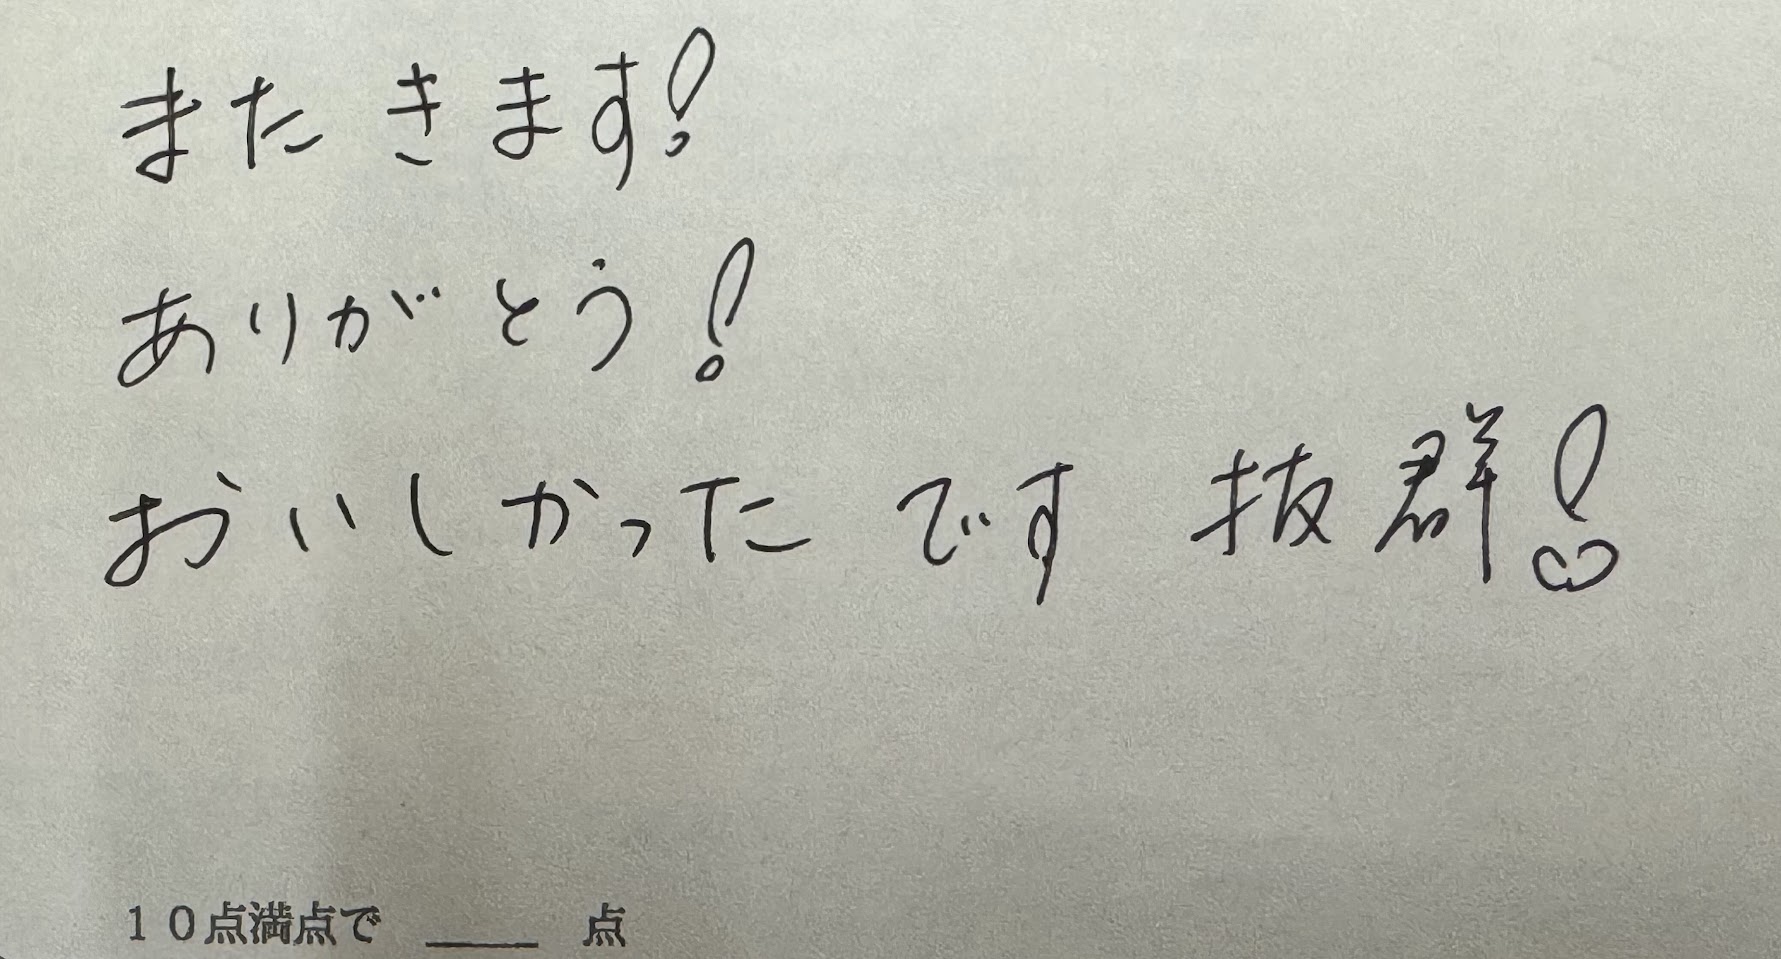 また きます!
ありがとう!
おいしかった です 抜群!
10点満点で ____ 点